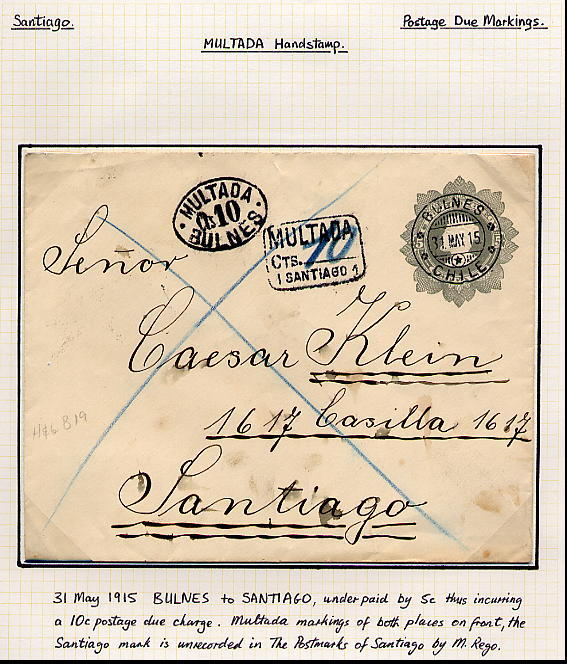 Santiago.
Postage Due Markings.
MULTADA Handstamp.
MULTADA
Cts 10
BULNES
MULTADA
Cts. 10
1 SANTIAGO 1
BULNES
31 MAY 15
CHILE
Señor
Caesar Klein
1617 Casilla 1617
Santiago
H&G B19
31 May 1915 BULNES to SANTIAGO, underpaid by 5c thus incurring
a 10c postage due charge. Multada markings of both places on front, the
Santiago mark is unrecorded in The Postmarks of Santiago by M. Rego.